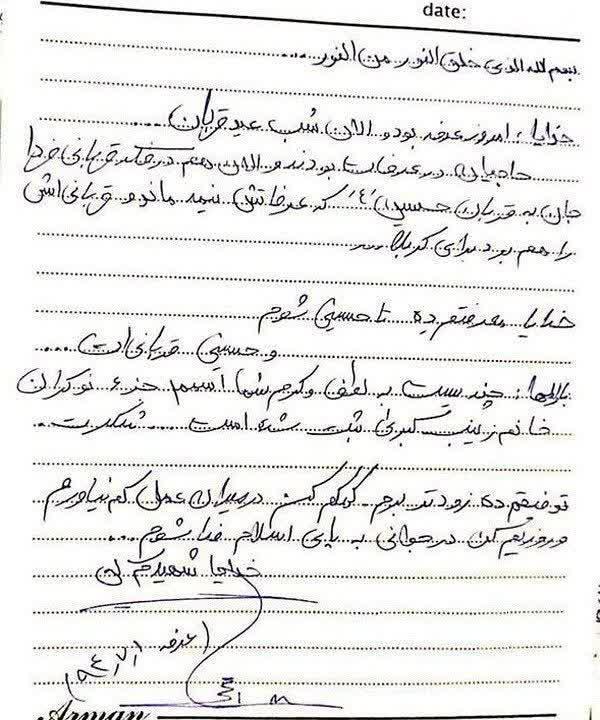 date:
بسم الله الذی خلق النور من النور....
خدایا، امروز عرفه بود و الان شب عید قربان....
حاجیان در عرفات بودند و الان هم در فکر قربانی فردا
جان به قربان حسین (ع) که عرفاتش نیمه ماند و قربانی‌اش
را هم بود برای کربلا...
خدایا معرفتم ده تا حسینی شوم
و حسینی قربانی‌ات....
بارالها، چند است به لطف و کرم شما اسمم جزء نوکران
خانم زینب کبری ثبت شده است.... شکرت..
توفیقم ده زودتر بروم. کمکم کن در میدان عمل کم نیاورم
و روزیم کن در جوانی به پای اسلام فدا شوم...
خدایا شهیدم کن
عرفه
۹۴/۷/۱
Arman